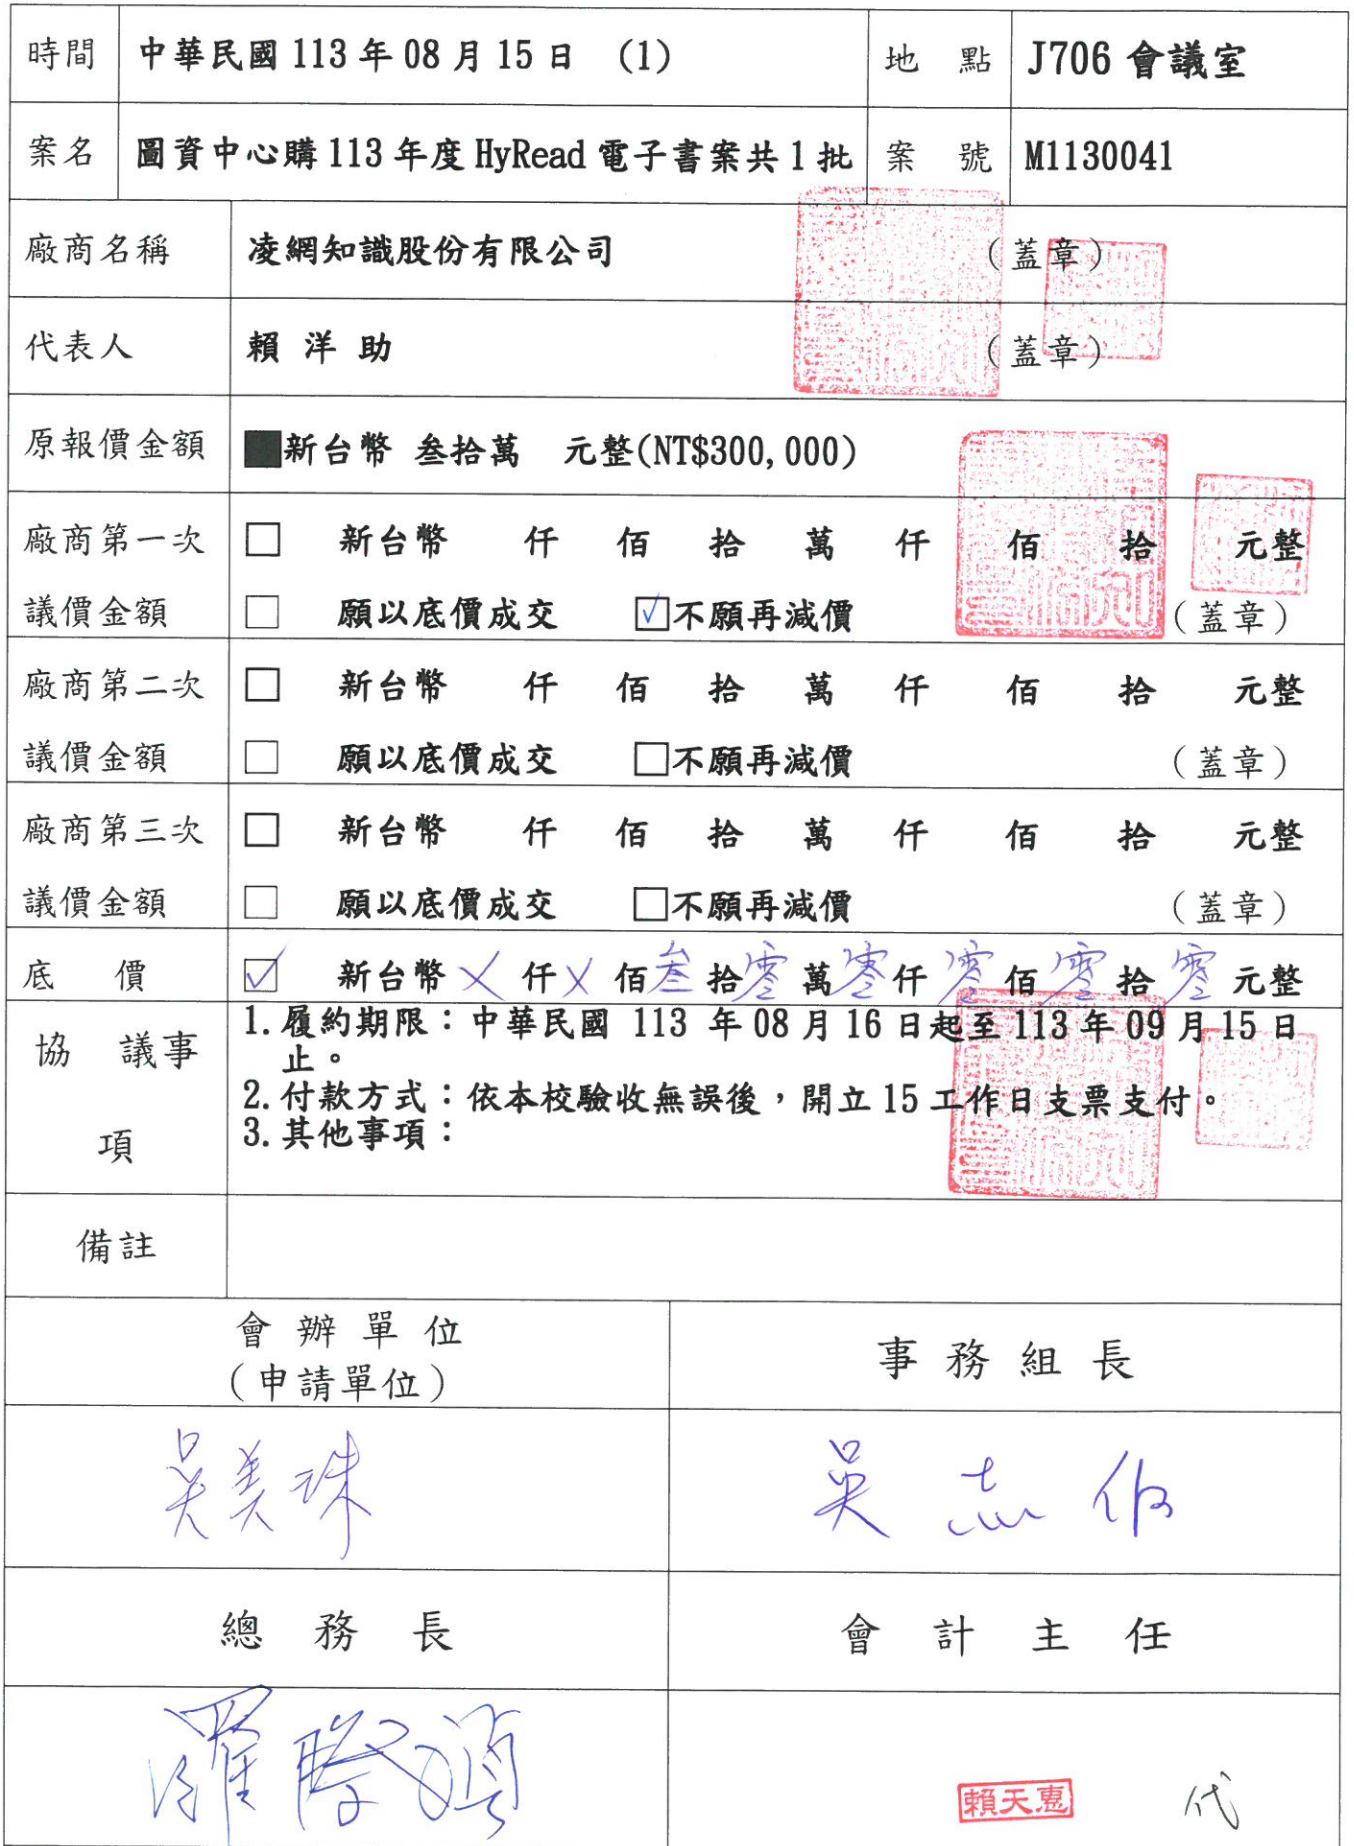 時間 中華民國 113 年 08 月 15 日 (1) 地 點 J706 會議室
案名 圖資中心購 113 年度 HyRead 電子書案共 1 批 案 號 M1130041
廠商名稱 凌網知識股份有限公司 (蓋章)
代表人 賴 洋 助 (蓋章)
原報價金額 ■新台幣 叁拾萬 元整(NT$300,000)
廠商第一次 □ 新台幣 仟 佰 拾 萬 仟 佰 拾 元整
議價金額 □ 願以底價成交 ☑不願再減價 (蓋章)
廠商第二次 □ 新台幣 仟 佰 拾 萬 仟 佰 拾 元整
議價金額 □ 願以底價成交 □不願再減價 (蓋章)
廠商第三次 □ 新台幣 仟 佰 拾 萬 仟 佰 拾 元整
議價金額 □ 願以底價成交 □不願再減價 (蓋章)
底 價 ☑ 新台幣 X 仟 X 佰 叁 拾 零 萬 零 仟 零 佰 零 拾 零 元整
協 議事
項
1.履約期限：中華民國 113 年 08 月 16 日起至 113 年 09 月 15 日
止。
2.付款方式：依本校驗收無誤後，開立 15 工作日支票支付。
3.其他事項：
備註
會 辦 單 位
(申請單位)
事 務 組 長
吳美珠
吳 志
總 務 長 會 計 主 任
羅
賴天惠 代